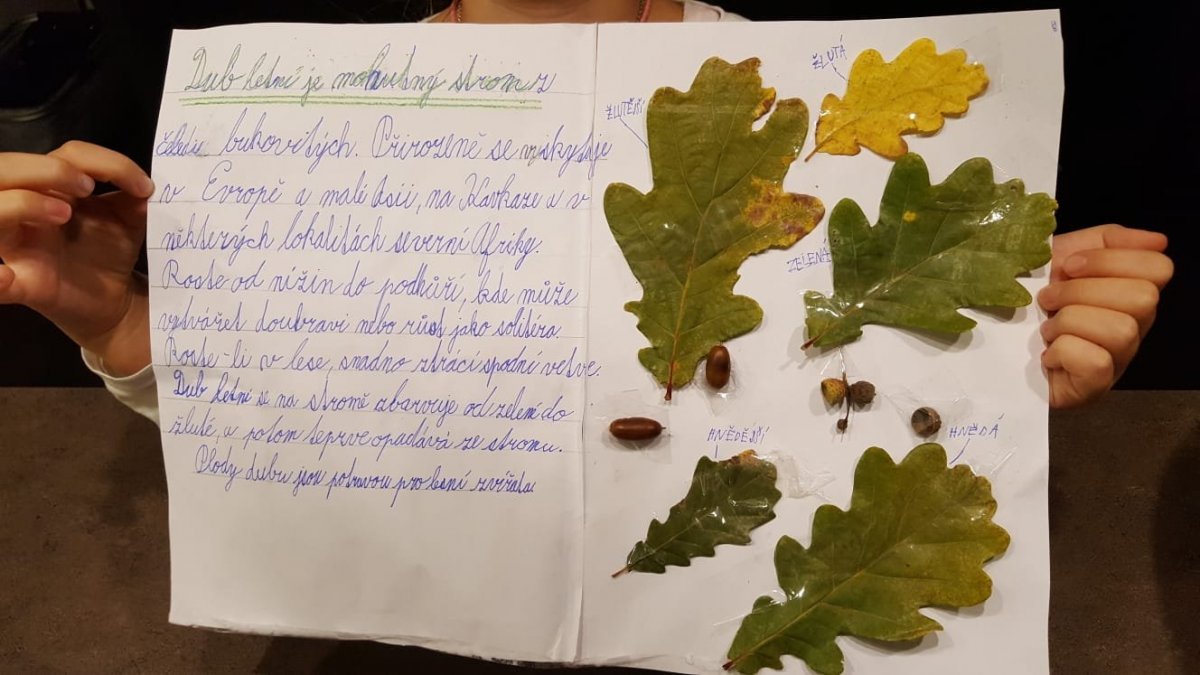 Dub letní je mohutný strom z
čeledi bukovitých. Přirozeně se vyskytuje
v Evropě a malé Asii, na Kavkaze a v
některých lokalitách severní Afriky.
Roste od nížin do podhůří, kde může
vytvářet doubravi nebo růst jako solitéra.
Roste-li v lese, snadno ztrácí spodní vetve.
Dub letní se na stromě zbarvuje od zelení do
žluté, a potom teprve opadává ze stromu.
Plody dubu jsou potravou pro lesní zvířata.
ŽLUTÁ
ŽLUTĚJŠÍ
ZELENÁ
HNĚDĚJŠÍ
HNĚDÁ